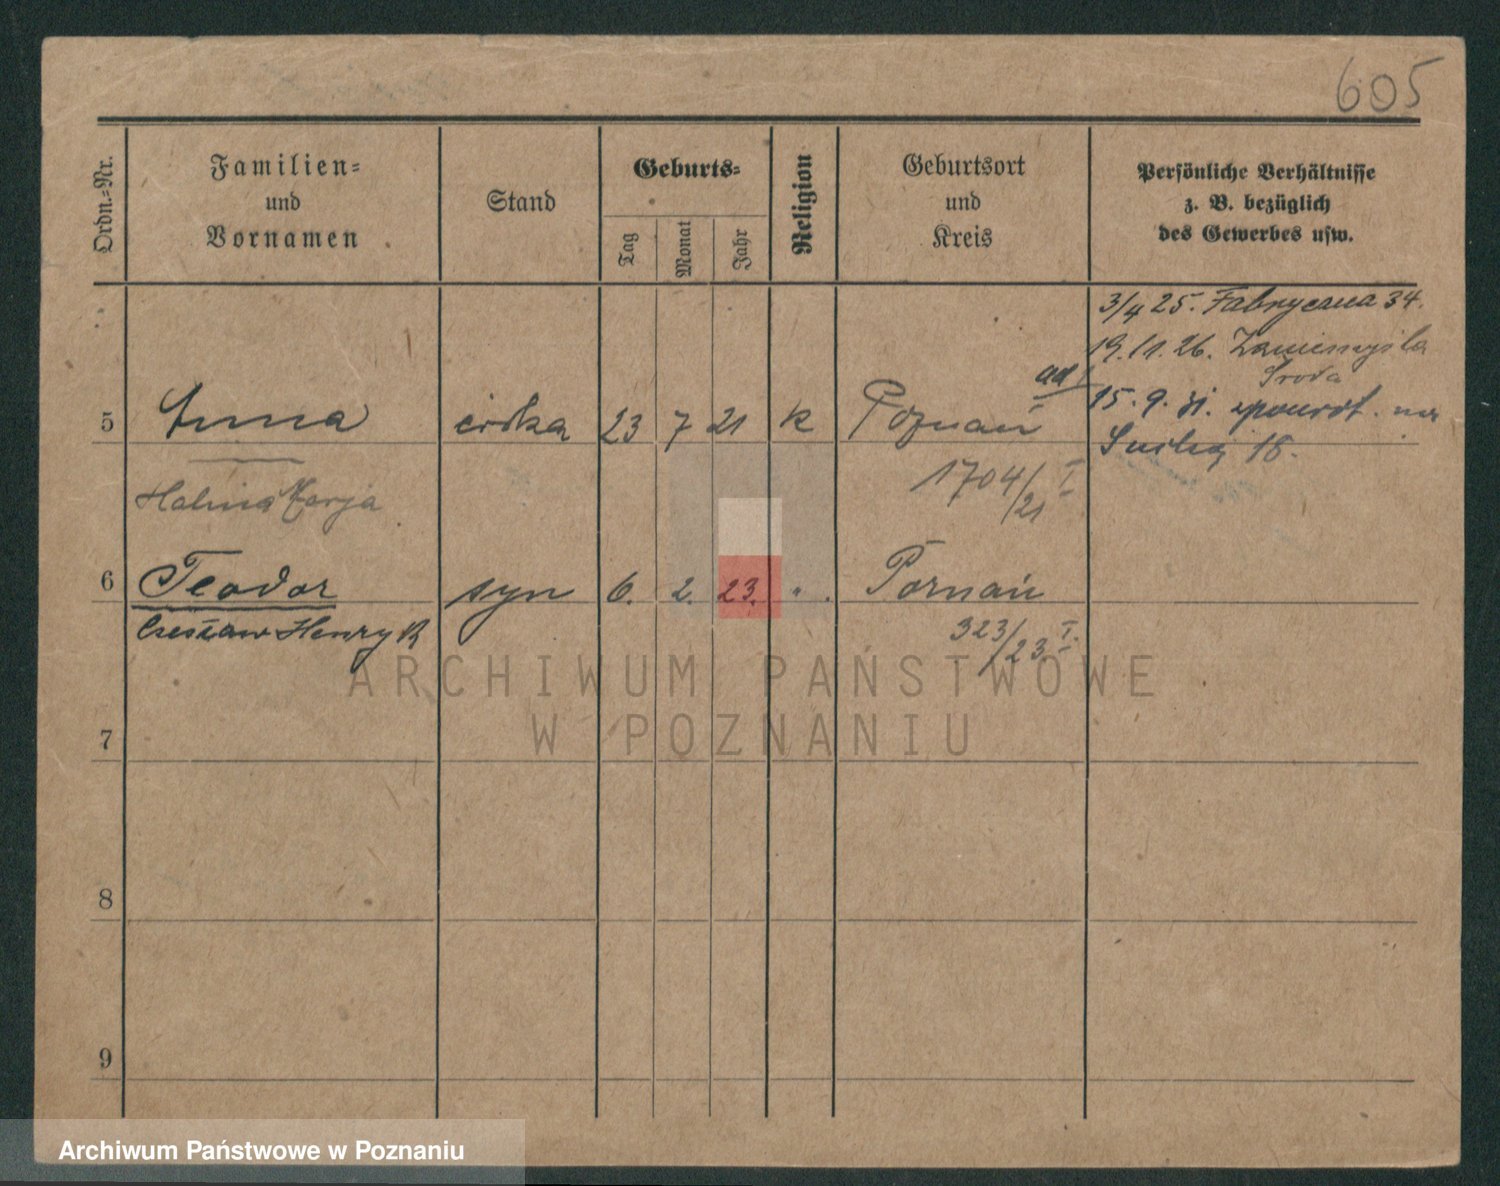 605
Ordn.=Nr.
Familien= und Vornamen
Stand
Geburts=
Tag
Monat
Jahr
Religion
Geburtsort und Kreis
Persönliche Verhältnisse
z. B. bezüglich
des Gewerbes usw.
3/4 25. Fabryczna 34.
19.11.26. Zaniemyśla
Środa
ad 1
15.9.31. spowrót. na
18.
5 Anna córka 23 7 21 k Poznań
Halina Marja
1704/21 I
6 Teodor syn 6. 2. 23. " . Poznań
Czesław Henryk
323/23 I.
ARCHIWUM PAŃSTWOWE
W POZNANIU
7
8
9
Archiwum Państwowe w Poznaniu